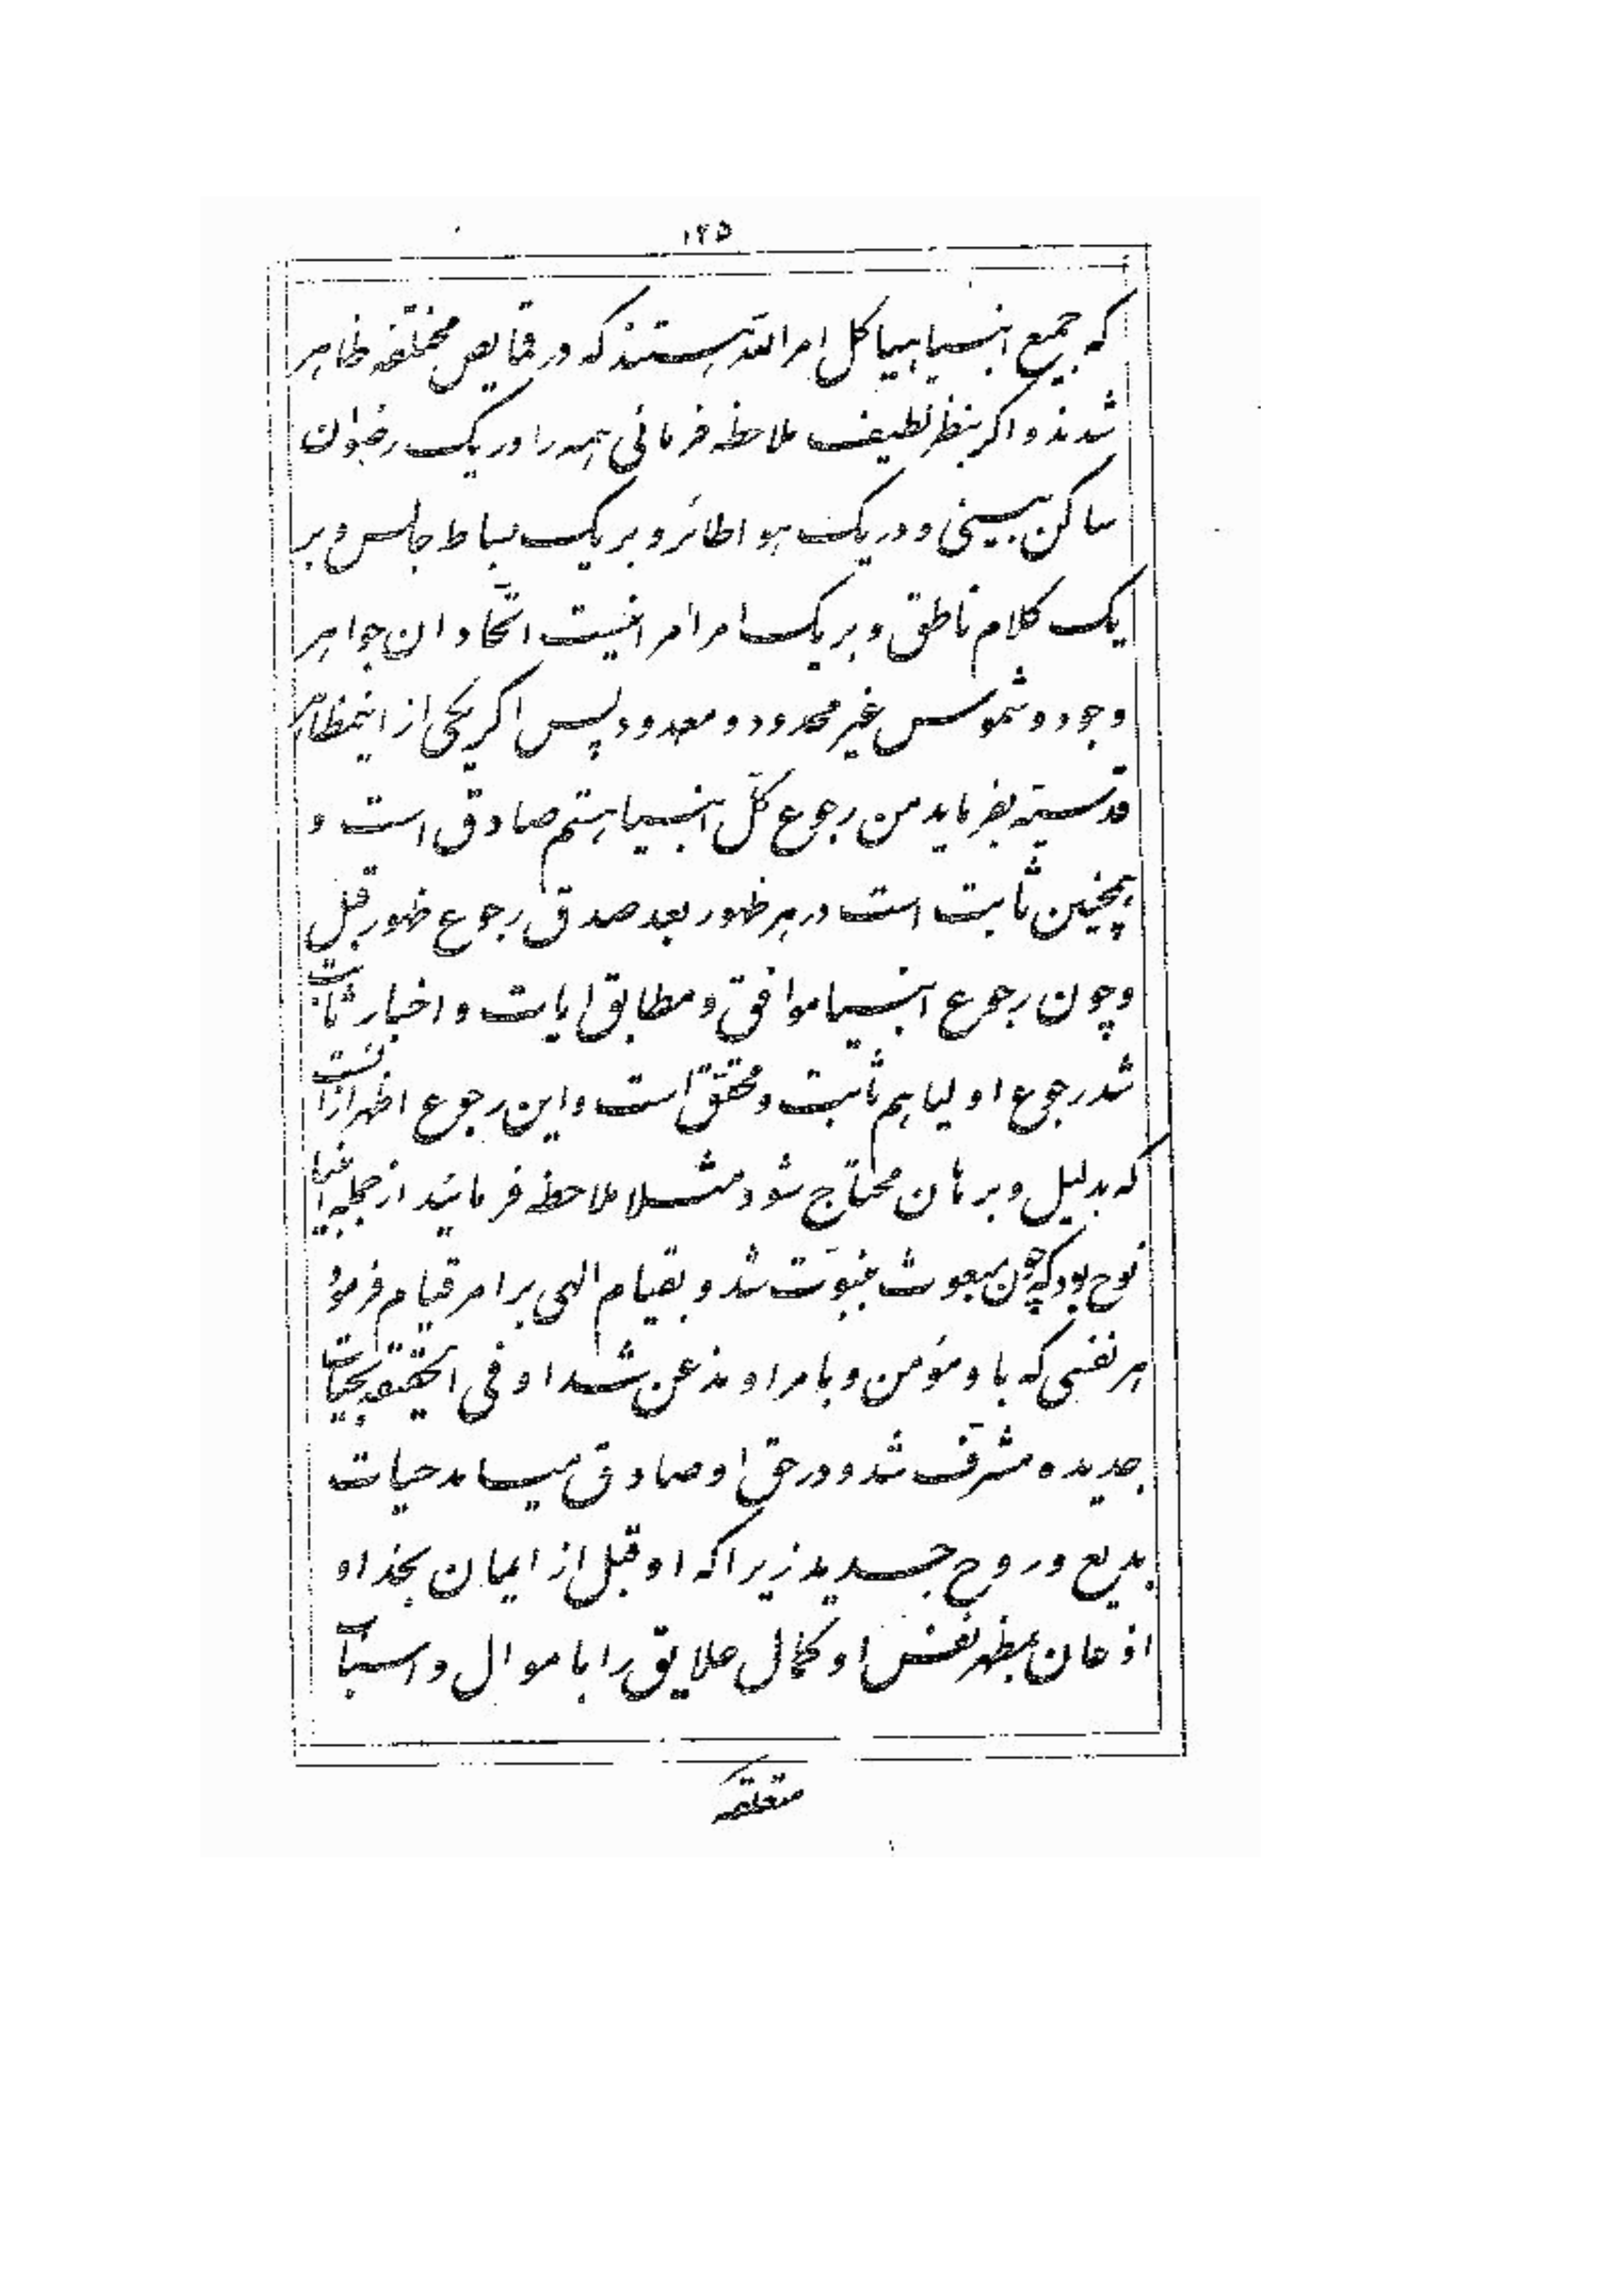 ١٢٥
که جمیع انبیا هیاکل امر الله هستند که در قمایص مختلفه ظاهر
شدند و اکر بنظر لطیف ملاحظه فرمائی همه را در یک رضوان
ساکن بینی و در یک هوا طائر و بر یک بساط جالس و بر
یک کلام ناطق و بر یک امر امر اینست اتّحاد ان جواهر
وجود و شموس غیر محدود و معدود پس اکر یکی از اینمظاهر
قدسیّه بفرماید من رجوع کلّ انبیا هستم صادق است و
همچنین ثابت است در هر ظهور بعد صدق رجوع ظهور قبل
و چون رجوع انبیا موافق و مطابق ایات و اخبار ثابت
شد رجوع اولیا هم ثابت و محقّق است و این رجوع اظهر از انست
که بدلیل و برهان محتاج شود مثلا ملاحظه فرمائید از جمله انبیا
نوح بود که چون مبعوث بنبوّت شد و بقیام الهی بر امر قیام فرمود
هر نفسی که باو مؤمن و بامر او مذعن شد او فی الحقیقه بحیات
جدیده مشرّف شد و در حقّ او صادق میامد حیات
بدیع و روح جدید زیرا که او قبل از ایمان بخدا و
اذعان بمظهر نفس او کمال علایق را باموال و اسباب
متعلّقه